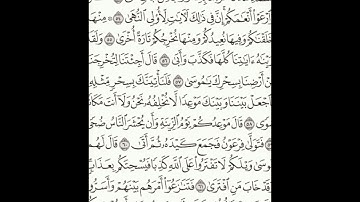 وَٱرْعَوْا۟ أَنْعَـٰمَكُمْ إِنَّ فِى ذَٰلِكَ لَـَٔايَـٰتٍ لِّأُو۟لِى ٱلنُّهَىٰ ٥٤ مِنْهَا
خَلَقْنَـٰكُمْ وَفِيهَا نُعِيدُكُمْ وَمِنْهَا نُخْرِجُكُمْ تَارَةً أُخْرَىٰ ٥٥ وَلَقَدْ
أَرَيْنَـٰهُ ءَايَـٰتِنَا كُلَّهَا فَكَذَّبَ وَأَبَىٰ ٥٦ قَالَ أَجِئْتَنَا لِتُخْرِجَنَا
مِنْ أَرْضِنَا بِسِحْرِكَ يَـٰمُوسَىٰ ٥٧ فَلَنَأْتِيَنَّكَ بِسِحْرٍ مِّثْلِهِ
فَٱجْعَلْ بَيْنَنَا وَبَيْنَكَ مَوْعِدًا لَّا نُخْلِفُهُۥ نَحْنُ وَلَآ أَنتَ مَكَانًا
٥٨ قَالَ مَوْعِدُكُمْ يَوْمُ ٱلزِّينَةِ وَأَن يُحْشَرَ ٱلنَّاسُ ضُحًى
٥٩ فَتَوَلَّىٰ فِرْعَوْنُ فَجَمَعَ كَيْدَهُۥ ثُمَّ أَتَىٰ ٦٠ قَالَ لَهُم
مُّوسَىٰ وَيْلَكُمْ لَا تَفْتَرُوا۟ عَلَى ٱللَّهِ كَذِبًا فَيُسْحِتَكُم بِعَذَابٍ
وَقَدْ خَابَ مَنِ ٱفْتَرَىٰ ٦١ فَتَنَـٰزَعُوٓا۟ أَمْرَهُم بَيْنَهُمْ وَأَسَرُّوا۟